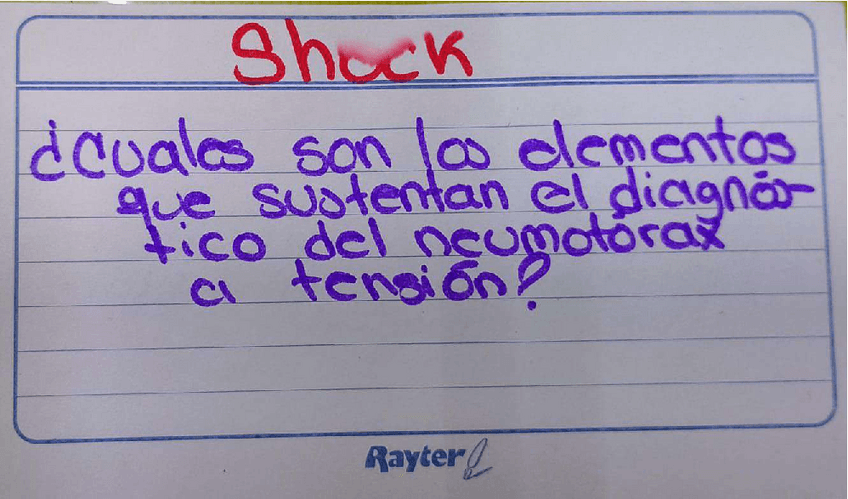 Shock
¿Cuales son los elementos
que sustentan el diagnós-
tico del neumotórax
a tensión?
Rayter